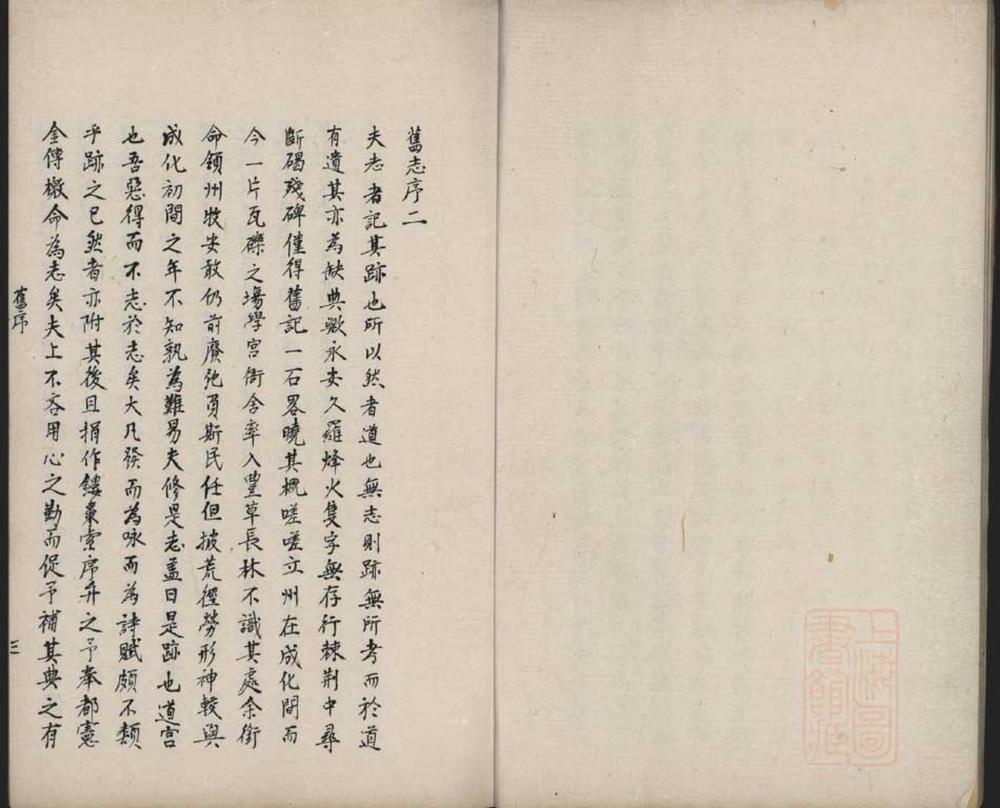 舊志序二
夫志者記其跡也所以然者道也無志則跡無所考而於道
有遺其亦為缺典歟永安久羅烽火隻字無存行棘荆中尋
斷碣殘碑僅得舊記一石畧曉其概嗟嗟立州在成化間而
今一片瓦礫之塲學宮衙舍率入豐草長林不識其處余銜
命領州牧安敢仍前廢弛負斯民任但披荒徑勞形神較與
成化初間之年不知孰為難易夫修是志盖曰是跡也道宮
也吾惡得而不志於志矣大凡發而為咏而為詩賦頗不類
乎跡之已然者亦附其後且捐作鏤棗索序弁之予奉都憲
金傅檄命為志矣夫上不吝用心之勤而促予補其典之有
舊序
三
上海圖書館藏